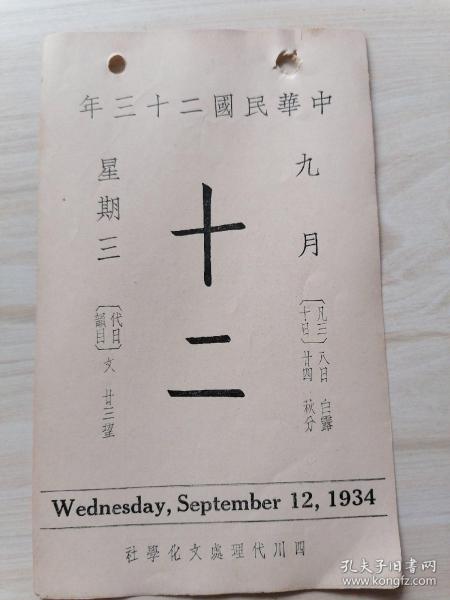 中華民國二十三年
九月
〔凡三十日〕
八日 白露
廿四 秋分
十二
星期三
〔代日韻目〕文 廿三望
Wednesday, September 12, 1934
四川代理處文化學社
孔夫子旧书网
www.kongfz.com